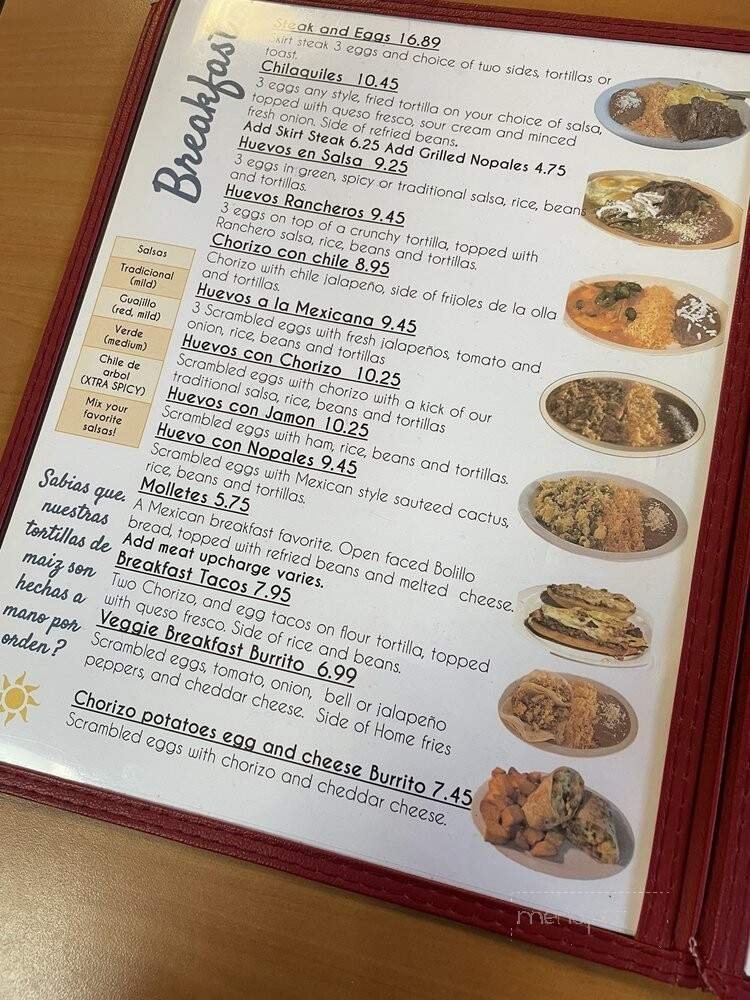 Breakfast
Steak and Eggs 16.89
Skirt steak 3 eggs and choice of two sides, tortillas or
toast.
Chilaquiles 10.45
3 eggs any style, fried tortilla on your choice of salsa,
topped with queso fresco, sour cream and minced
fresh onion. Side of refried beans.
Add Skirt Steak 6.25 Add Grilled Nopales 4.75
Huevos en Salsa 9.25
3 eggs in green, spicy or traditional salsa, rice, beans
and tortillas.
Huevos Rancheros 9.45
3 eggs on top of a crunchy tortilla, topped with
Ranchero salsa, rice, beans and tortillas.
Chorizo con chile 8.95
Chorizo with chile jalapeño, side of frijoles de la olla
and tortillas.
Huevos a la Mexicana 9.45
3 Scrambled eggs with fresh jalapeños, tomato and
onion, rice, beans and tortillas
Huevos con Chorizo 10.25
Scrambled eggs with chorizo with a kick of our
traditional salsa, rice, beans and tortillas
Huevos con Jamon 10.25
Scrambled eggs with ham, rice, beans and tortillas.
Huevo con Nopales 9.45
Scrambled eggs with Mexican style sauteed cactus,
rice, beans and tortillas.
Molletes 5.75
A Mexican breakfast favorite. Open faced Bolillo
bread, topped with refried beans and melted cheese.
Add meat upcharge varies.
Breakfast Tacos 7.95
Two Chorizo, and egg tacos on flour tortilla, topped
with queso fresco. Side of rice and beans.
Veggie Breakfast Burrito 6.99
Scrambled eggs, tomato, onion, bell or jalapeño
peppers, and cheddar cheese. Side of Home fries
Chorizo potatoes egg and cheese Burrito 7.45
Scrambled eggs with chorizo and cheddar cheese.
Salsas
Tradicional
(mild)
Guajillo
(red, mild)
Verde
(medium)
Chile de
arbol
(XTRA SPICY)
Mix your
favorite
salsas!
Sabias que
nuestras
tortillas de
maiz son
hechas a
mano por
orden?